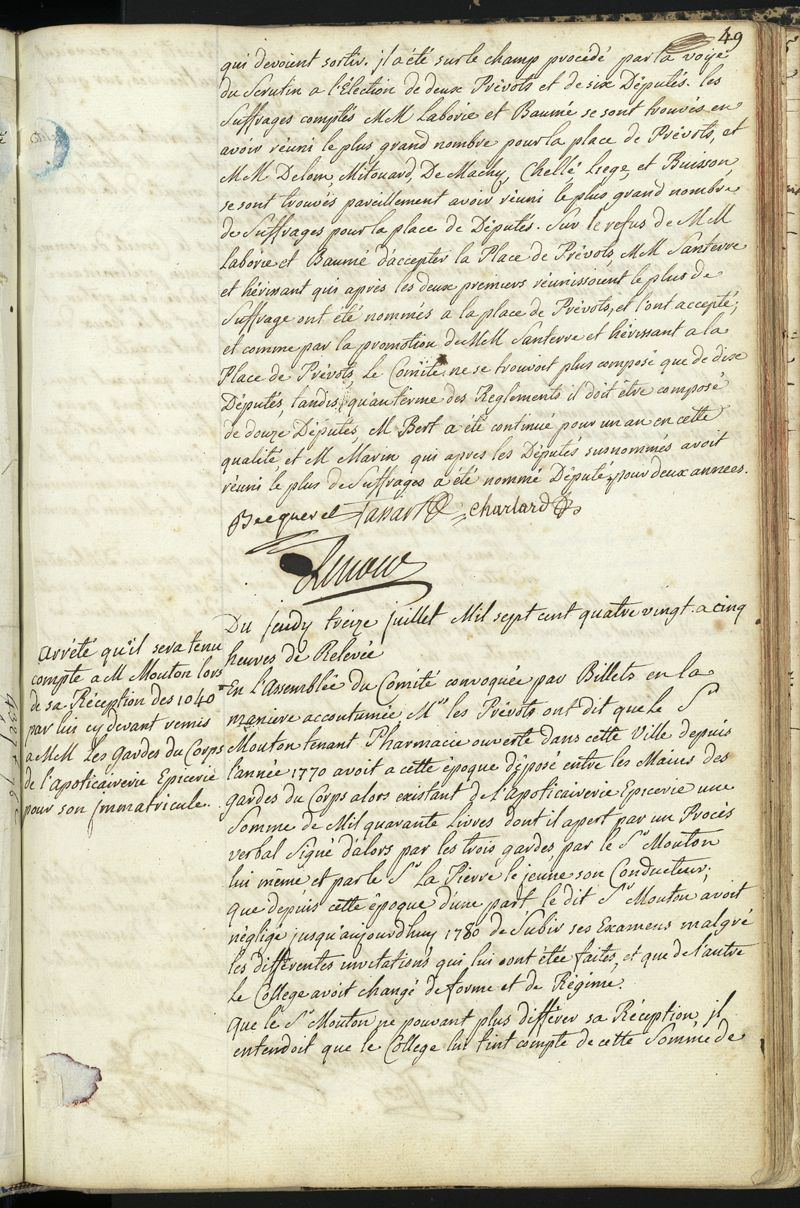 49
qui devoient sortir. jl a été sur le champ procedé par la voye
du Scrutin a l'Élection de deux Prévots et de six Députés. les
Suffrages comptés MM Laborie et Baumé se sont trouvés en
avoir réuni le plus grand nombre pour la place de Prévots, et
MM Delom, Mitouard, De Machy, Chellé, Liege, et Buisson,
se sont trouvés pareillement avoir réuni le plus grand nombre
de Suffrages pour la place de Députés. Sur le refus de MM
Laborie et Baumé d'accepter la Place de Prévots MM Santerre
et hérissant qui après les deux premiers réunissoient le plus de
Suffrage ont été nommés a la place de Prévots, et l'ont accepté;
et comme par la promotion de MM Santerre et hérissant a la
Place de Prévots, Le Comité ne se trouvoit plus composé que de dix
Députés, tandis qu'au terme des Reglements il doit être composé
de douze Députés, M Bert a été continué pour un an en cette
qualité, et M Marin qui apres les Députés susnommés avoit
réuni le plus de Suffrages a été nommé Député pour deux années.
Becquerel Tassart charlard
Lenoir
Du Jeudy treize juillet Mil sept cent quatre vingt. a cinq
heures de Relevée
Arrêté qu'il sera tenu
compte a M Mouton lors
de sa Réception des 1040#
par lui cy devant remis
a MM Les Gardes du Corps
de l'apoticairerie Epicerie
pour son Jmmatricule.
En l'Assemblée du Comité convoquée par Billets en la
maniere accoutumée Mrs les Prévots ont dit que le Sr
Mouton tenant Pharmacie ouverte dans cette Ville depuis
l'année 1770 avoit a cette époque déposé entre les Mains des
gardes du Corps alors existant de l'Apoticairerie Epicerie une
Somme de Mil quarante Livres dont il apert par un Procès
verbal Signé d'alors par les trois gardes par le Sr Mouton
lui même et par le Sr La Pierre le jeune son Conducteur;
que depuis cette époque d'une part le dit Sr Mouton avoit
négligé jusqu'aujourdhuy 1780 de Subir ses Examens malgré
les différentes invitations qui lui ont étée faites, et que de l'autre
le College avoit changé de forme et de Régime.
Que le Sr Mouton ne pouvant plus différer sa Réception jl
entendoit que le College lui tint compte de cette Somme de